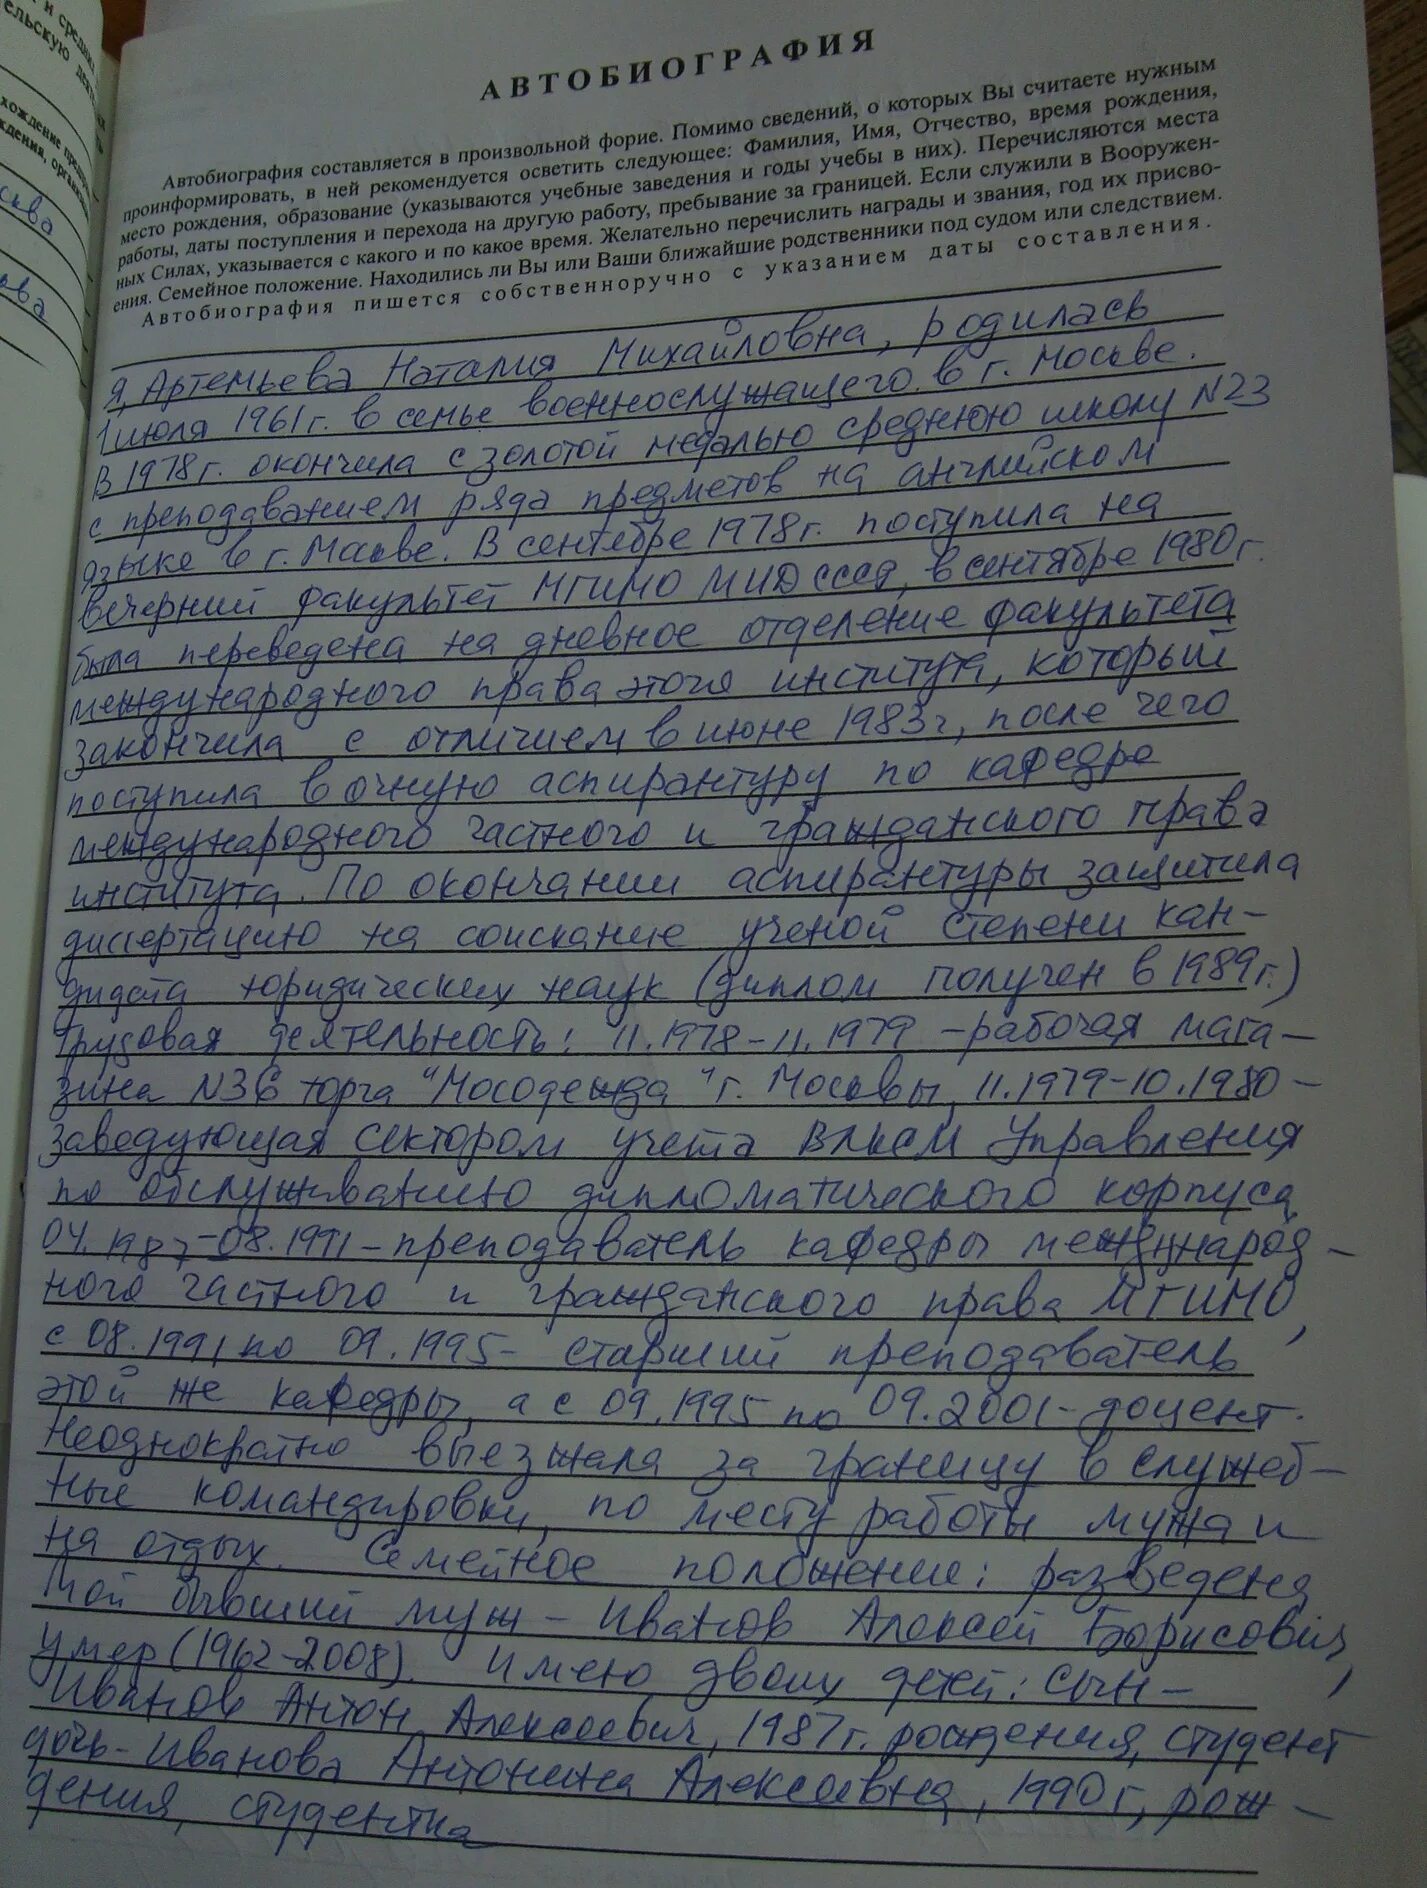 АВТОБИОГРАФИЯ
Автобиография составляется в произвольной форие. Помимо сведений, о которых Вы считаете нужным
проинформировать, в ней рекомендуется осветить следующее: Фамилия, Имя, Отчество, время рождения,
место рождения, образование (указываются учебные заведения и годы учебы в них). Перечисляются места
работы, даты поступления и перехода на другую работу, пребывание за границей. Если служили в Вооружен-
ных Силах, указывается с какого и по какое время. Желательно перечислить награды и звания, год их присво-
ения. Семейное положение. Находились ли Вы или Ваши ближайшие родственники под судом или следствием.
Автобиография пишется собственноручно с указанием даты составления.
Я, Артемьева Наталия Михайловна, родилась
1 июля 1961г. в семье военнослужащего в г. Москве.
В 1978г. окончила с золотой медалью среднюю школу N23
с преподаванием ряда предметов на английском
языке в г. Москве. В сентябре 1978г. поступила на
вечерний факультет МГИМО МИД СССР, в сентябре 1980г.
была переведена на дневное отделение факультета
международного права этого института, который
закончила с отличием в июне 1983г, после чего
поступила в очную аспирантуру по кафедре
международного частного и гражданского права
института. По окончании аспирантуры защитила
диссертацию на соискание ученой степени кан-
дидата юридических наук (диплом получен в 1989г.)
Трудовая деятельность: 11.1978-11.1979 - рабочая мага-
зина N36 торга "Мосодежда" г. Москвы, 11.1979-10.1980 -
заведующая сектором учета ВЛКСМ Управления
по обслуживанию дипломатического корпуса,
04.1987-08.1991 - преподаватель кафедры международ-
ного частного и гражданского права МГИМО,
с 08.1991 по 09.1995 - старший преподаватель
этой же кафедры, а с 09.1995 по 09.2001 - доцент.
Неоднократно выезжала за границу в служеб-
ные командировки, по месту работы мужа и
на отдых. Семейное положение: разведена
Мой бывший муж - Иванов Алексей Борисович,
умер (1962-2008). Имею двоих детей: сын -
Иванов Антон Алексеевич, 1987г. рождения, студент
дочь - Иванова Антонина Алексеевна, 1990г, рож-
дения, студентка